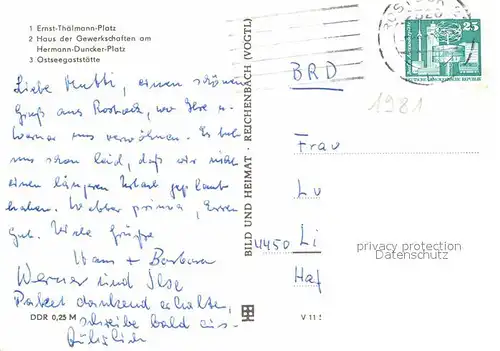 1 Ernst-Thälmann-Platz
2 Haus der Gewerkschaften am
Hermann-Duncker-Platz
3 Ostseegaststätte
Liebe Mutti, einen schönen
Gruß aus Rostock, wo Ilse u.
Werner uns verwöhnen. Es
uns schon leid, daß wir nicht
einen längeren Urlaub geplant
haben. Wetter prima, Essen
gut. Viele Grüße
Hans + Barbara
Werner und Ilse
Paket dankend erhalten,
schreibe bald aus-
führlich
DDR 0,25 M
BILD UND HEIMAT · REICHENBACH (VOGTL)
V 11
BRD
25
DEUTSCHE DEMOKRATISCHE REPUBLIK
1981
Frau
Lu
4450 Li
privacy protection
Datenschutz